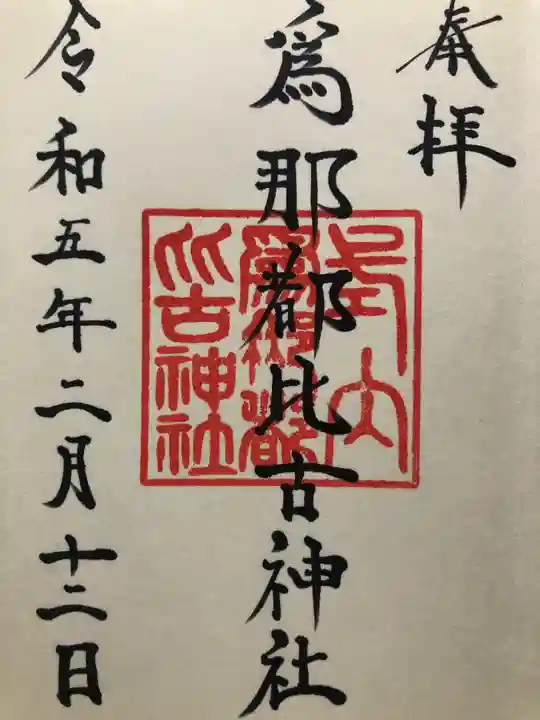 奉拝
爲那都比古神社
令和五年二月十二日
式内
爲那都
比古神社